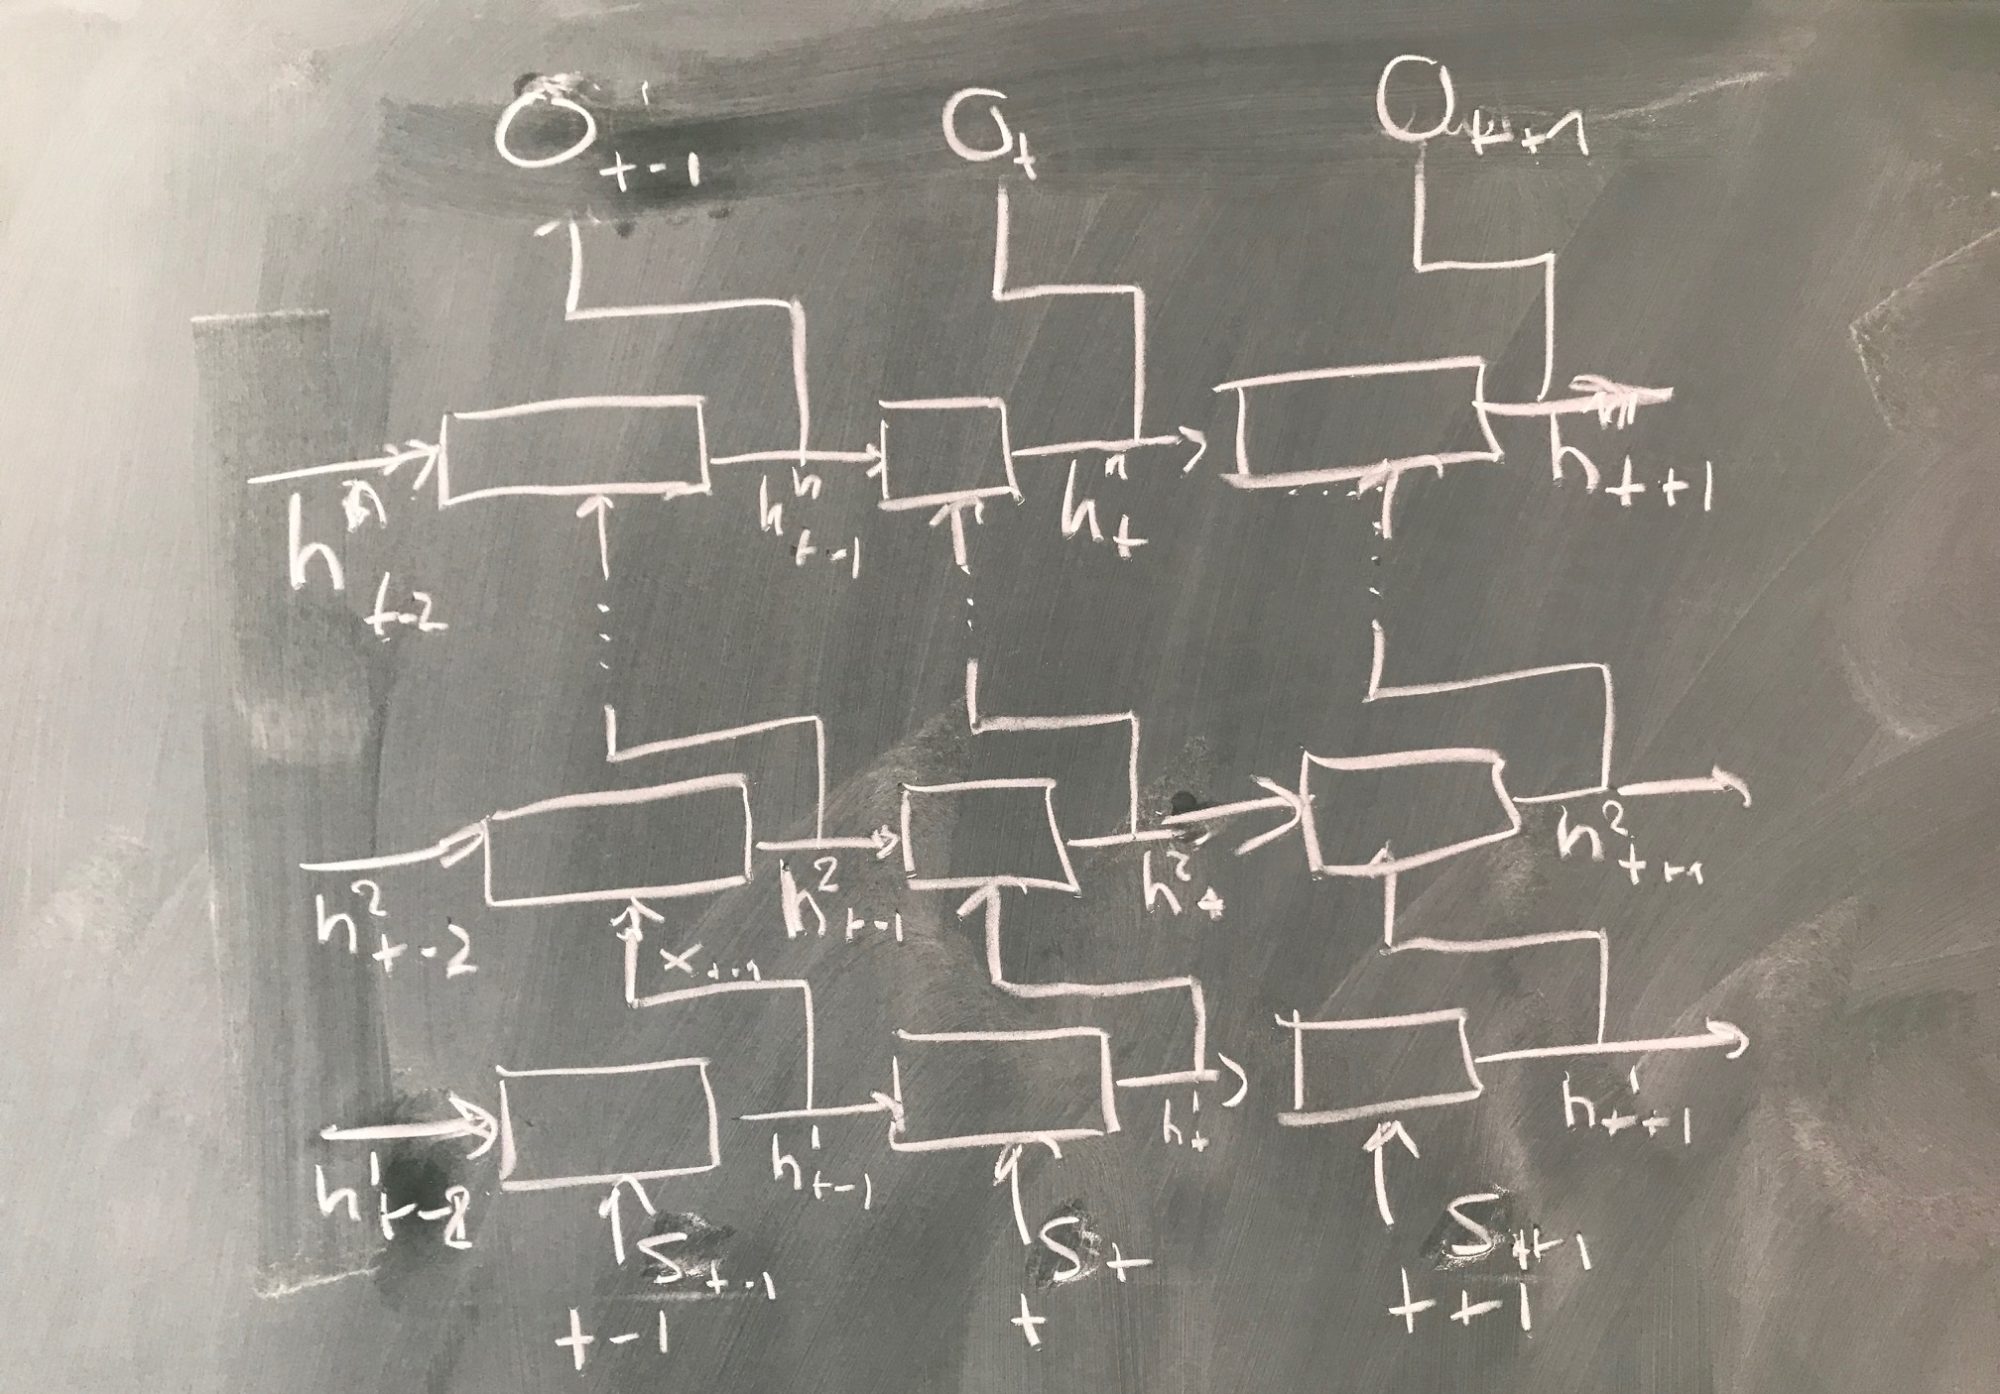 O_{t-1} O_t O_{t+1}
h^n_{t-2} h^n_{t-1} h^n_t h^n_{t+1}
h^2_{t-2} h^2_{t-1} h^2_t h^2_{t+1}
x_{t-1}
h^1_{t-2} h^1_{t-1} h^1_t h^1_{t+1}
S_{t-1} S_t S_{t+1}
t-1 t t+1